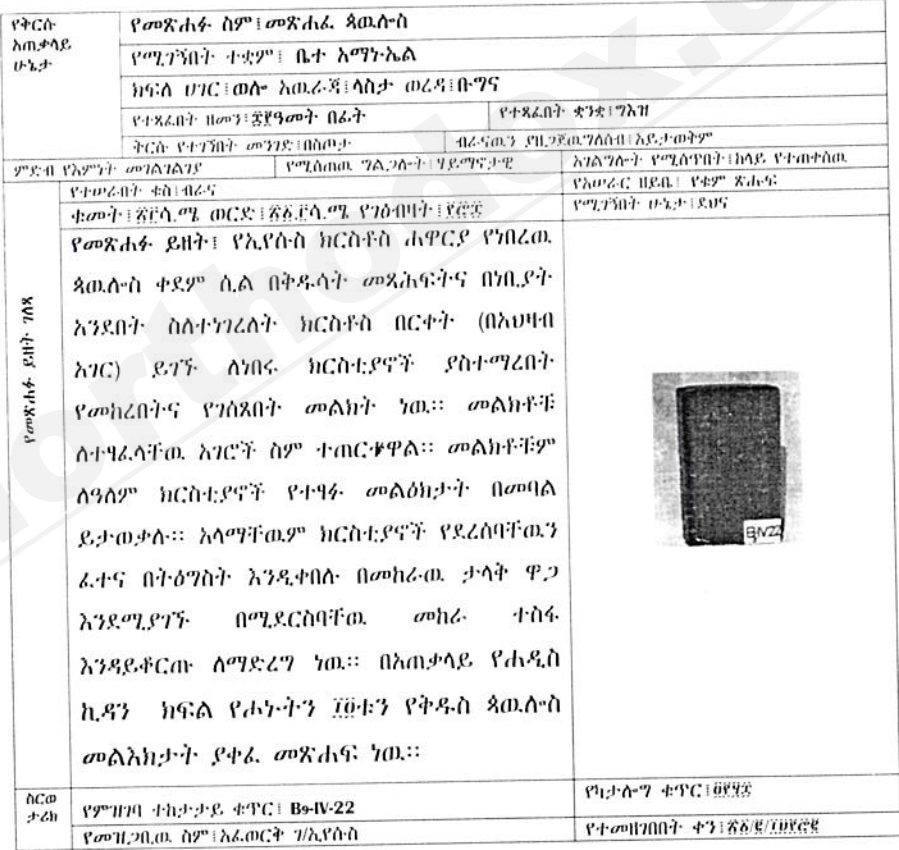 የቅርሱ አጠቃላይ ሁኔታ
የመጽሐፉ ስም፤መጽሐፈ ጳዉሎስ
የሚገኝበት ተቋም፤ ቤተ አማኑኤል
ክፍለ ሀገር፤ወሎ አዉራጃ፤ላስታ ወረዳ፤ቡግና
የተጻፈበት ዘመን፤ ዓመት በፊት
የተጻፈበት ቋንቋ፤ግእዝ
ቅርሱ የተገኘበት መንገድ፤በስጦታ
ብራናዉን ያዘጋጀዉ ግለሰብ፤አይታወቅም
ምድብ የእምነት መገልገልገያ
የሚሰጠዉ ግልጋሎት፤ሃይማኖታዊ
አገልግሎት የሚሰጥበት፤ከላይ የተጠቀሰዉ
የተሠራበት ቁስ፤ብራና
የአሠራር ዘይቤ፤ የቁም ጽሑፍ
ቁመት፤ ሳ.ሜ ወርድ፤ ሳ.ሜ የገፅብዛት፤
የሚገኝበት ሁኔታ፤ደህና
የመጽሐፉ ይዘት ገለጻ
የመጽሐፉ ይዘት፤ የኢየሱስ ክርስቶስ ሐዋርያ የነበረዉ
ጳዉሎስ ቀደም ሲል በቅዱሳት መጻሕፍትና በነቢያት
አንደበት ስለተነገረለት ክርስቶስ በርቀት (በአህዛብ
አገር) ይገኙ ለነበሩ ክርስቲያኖች ያስተማረበት
የመከረበትና የገሰጸበት መልክት ነዉ። መልክቶቹ
ለተፃፈላቸዉ አገሮች ስም ተጠርቀዋል። መልክቶቹም
ለዓለም ክርስቲያኖች የተፃፉ መልዕክታት በመባል
ይታወቃሉ። አላማቸዉም ክርስቲያኖች የደረሰባቸዉን
ፈተና በትዕግስት እንዲቀበሉ በመከራዉ ታላቅ ዋጋ
እንደሚያገኙ በሚደርስባቸዉ መከራ ተስፋ
እንዳይቆርጡ ለማድረግ ነዉ። በአጠቃላይ የሐዲስ
ኪዳን ክፍል የሑኑትን ፲፬ቱን የቅዱስ ጳዉሎስ
መልእክታት ያቀፈ መጽሐፍ ነዉ።
B9-IV-22
ስርወ ታሪክ
የምዝገባ ተከታታይ ቁጥር፤ B9-IV-22
የካታሎግ ቁጥር፤
የመዝጋቢዉ ስም፤አፈወርቅ ገ/ኢየሱስ
የተመዘገበበት ቀን፤
orthodox.